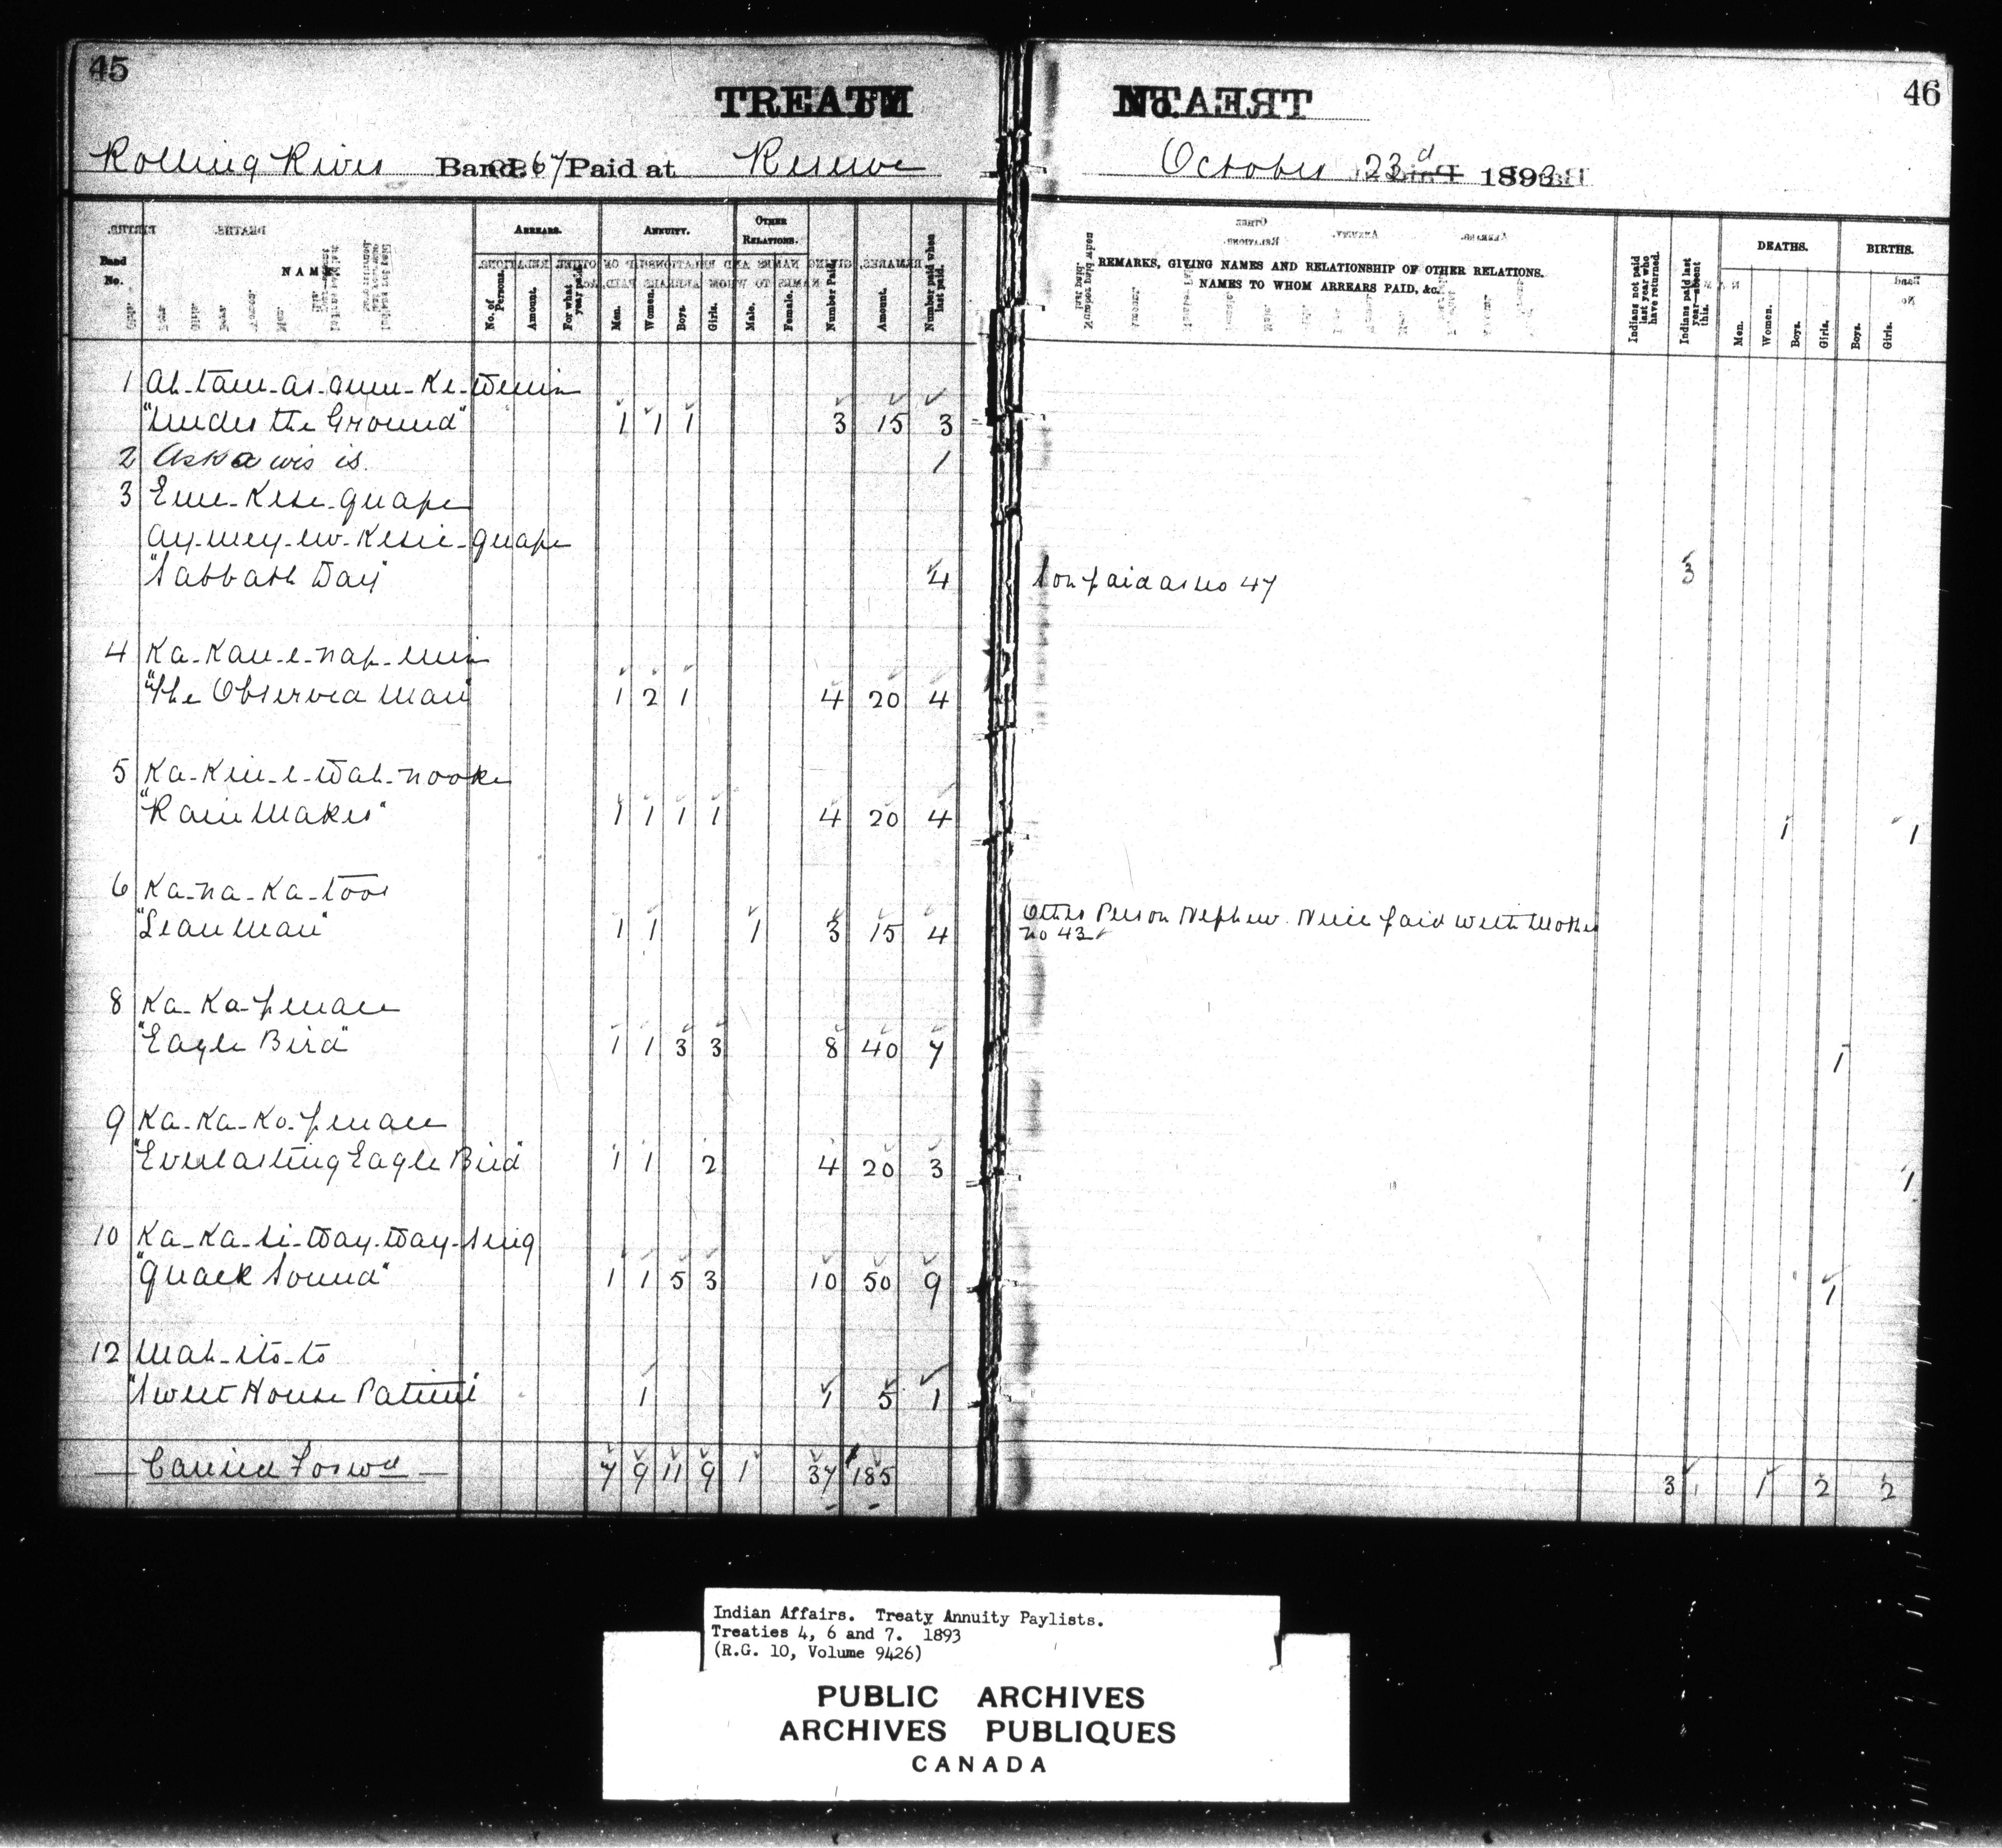 45
46
TREATY
No.
Rolling River Band. 67 Paid at Reserve
October 23d 1893
Band No.
NAME
ARREARS.
No. of Persons.
Amount.
For what year paid.
ANNUITY.
Men.
Women.
Boys.
Girls.
OTHER RELATIONS.
Male.
Female.
Number Paid.
Amount.
Number paid when last paid.
REMARKS, GIVING NAMES AND RELATIONSHIP OF OTHER RELATIONS.
NAMES TO WHOM ARREARS PAID, &c.
Indians not paid last year who have returned.
Indians paid last year absent this.
DEATHS.
Men.
Women.
Boys.
Girls.
BIRTHS.
Boys.
Girls.
1 Ah-tam-as-aum-Ke-Wenin
"Under the Ground" 1 1 1 3 15 3
2 Askawis is. 1
3 Eme-Kese-quape
Ay-mey-ew-Kesie-quape
"Sabbath Day" 4 Son paid as no 47 3
4 Ka-Kau-e-nap-enin
"The Observed Man" 1 2 1 4 20 4
5 Ka-Kin-e-Wah-nooke
"Rain Maker" 1 1 1 1 4 20 4 1 1
6 Ka-na-Ka-toos
"Lean Man" 1 1 1 3 15 4 Other Person Nephew. Niece paid with Mother
no 43
8 Ka-Ka-penace
"Eagle Bird" 1 1 3 3 8 40 7 1
9 Ka-Ka-Ko-penace
"Everlasting Eagle Bird" 1 1 2 4 20 3 1
10 Ka-Ka-si-Way-Way-sing
"Quack Sound" 1 1 5 3 10 50 9 1
12 Mah-ito-to
"Sweet House Patient" 1 1 5 1
Carried Forwd 7 9 11 9 1 37 185 3 1 2 2
Indian Affairs. Treaty Annuity Paylists.
Treaties 4, 6 and 7. 1893
(R.G. 10, Volume 9426)
PUBLIC ARCHIVES
ARCHIVES PUBLIQUES
CANADA